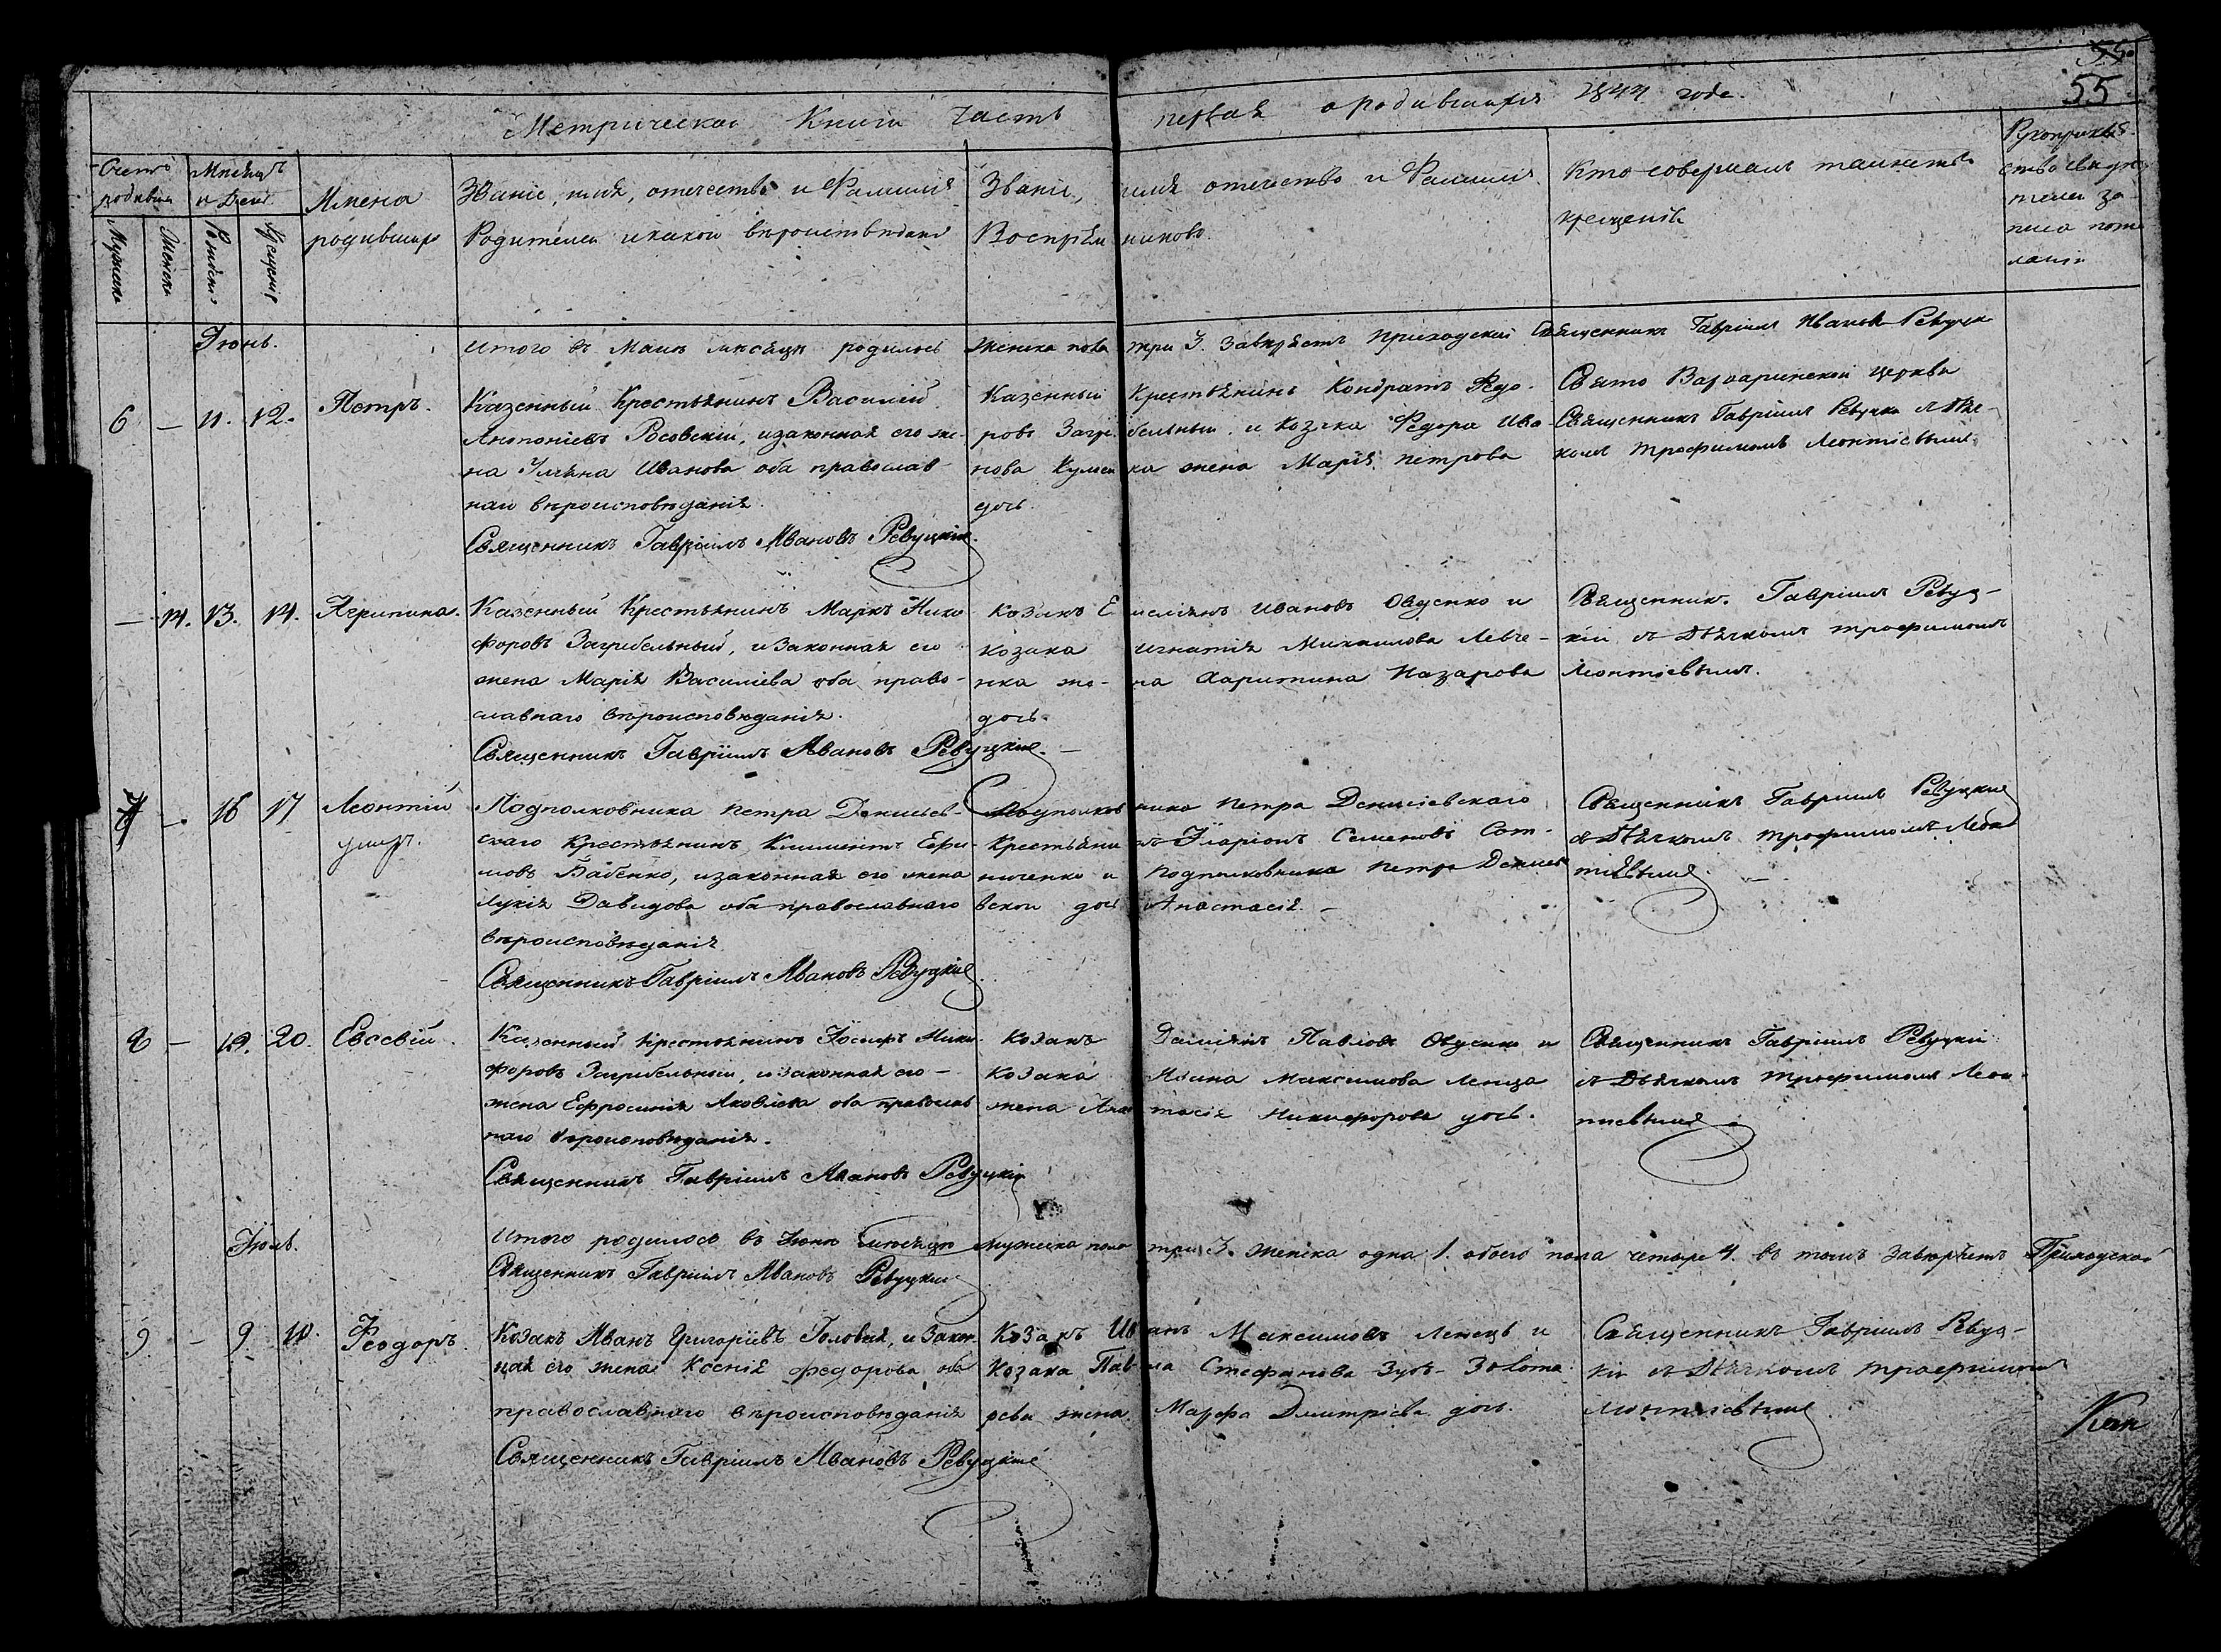 55
55
Метрической Книги Часть первая о родившихся 1844 года.
Счетъ родивш
Мѣсяцъ и День
Мужеска
Женска
Рождені
Крещеніе
Имена
родивших
Званіе, имя, отечество и Фамилія
Родителей и какой вѣроисповѣдані
Званіе, имя отечество и Фамилія
Воспріемниковъ.
Кто совершалъ таинство
крещенія
Рукоприклад
ство свидѣ
телей за
писи поже
ланію
Іюнь.
Итого въ Маіѣ мѣсяцѣ родилось женска пола три 3. Завѣряетъ Приходскій Священникъ Гавріилъ Ивановъ Ревуцк
6 — 11. 12. Петръ.
Казенный Крестьянинъ Василій
Антоніевъ Росовскій, и законная его же-
на Ульяна Иванова оба православ
наго вѣроисповѣданія.
Священникъ Гавріилъ Ивановъ Ревуцкій.
Казенный Крестьянинъ Кондратъ Федо-
ровъ Загребельный и Козака Федора Ива-
нова жена Марія Петрова
дочь.
Свято Варваринской церкви
Священникъ Гавріилъ Ревуцкій съ Дьяч-
комъ Трофимомъ Леонтіевымъ
— 14. 13. 14. Агрипина.
Казенный Крестьянинъ Маркъ Ники
форовъ Загребельный, и Законная его
жена Марія Василіева оба право-
славнаго вѣроисповѣданія.
Священникъ Гавріилъ Ивановъ Ревуцкій.
Козакъ Емеліянъ Ивановъ Овдѣенко и
Козака Игнатія Михаилова Левче-
нка же-на Харитина Назарова
дочь.
Священникъ Гавріилъ Ревуц-
кій съ Дьячкомъ Трофимомъ
Леонтіевымъ.
7 — 16 17 Леонтій
умеръ.
Подполковника Петра Денисьев-
скаго Крестьянинъ Климентъ Ефи-
мовъ Бабенко, и законная его жена
Лукія Давидова оба православнаго
вѣроисповѣданія
Священникъ Гавріилъ Ивановъ Ревуцкій
Подполковника Петра Денисіевскаго
Крестьянинъ Іларіонъ Семеновъ Сот-
ниченко и Подполковника Петра Денисье
вской дочь Анастасія. —
Священникъ Гавріилъ Ревуцкій
съ Дьячкомъ Трофимомъ Леон
тіевымъ. —
8 — 19. 20. Евсевій.
Казенный Крестьянинъ Іосифъ Ники-
форовъ Загребельный, и Законная его —
жена Ефросинія Яковлева оба православ
наго вѣроисповѣданія.
Священникъ Гавріилъ Ивановъ Ревуцкій
Козакъ Даміянъ Павловъ и
Козака Максимова Ленца
жена Анастасія Никифорова дочь.
Священникъ Гавріилъ Ревуцкій
съ Дьячкомъ Трофимомъ Леон-
тиевымъ
Іюль.
Итого родилось въ Іюнѣ мѣсяцѣ Мужеска пола три 3. Женска одна 1. обоего пола четыре 4. въ томъ Завѣряетъ Приходской
Священникъ Гавріилъ Ивановъ Ревуцкій
9 — 9 10. Феодоръ.
Козакъ Иванъ Григоріевъ Головня, и Закон-
ная его жена Ксенія Федорова оба
православнаго вѣроисповѣданія
Священникъ Гавріилъ Ивановъ Ревуцкій
Козакъ Иванъ Максимовъ Ленецъ и
Козака Павла Стефанова Зубъ-Золота
рева жена Марфа Дмитріева дочь.
Священникъ Гавріилъ Ревуц-
кій съ Дьячкомъ Трофимомъ
Леонтіевымъ.